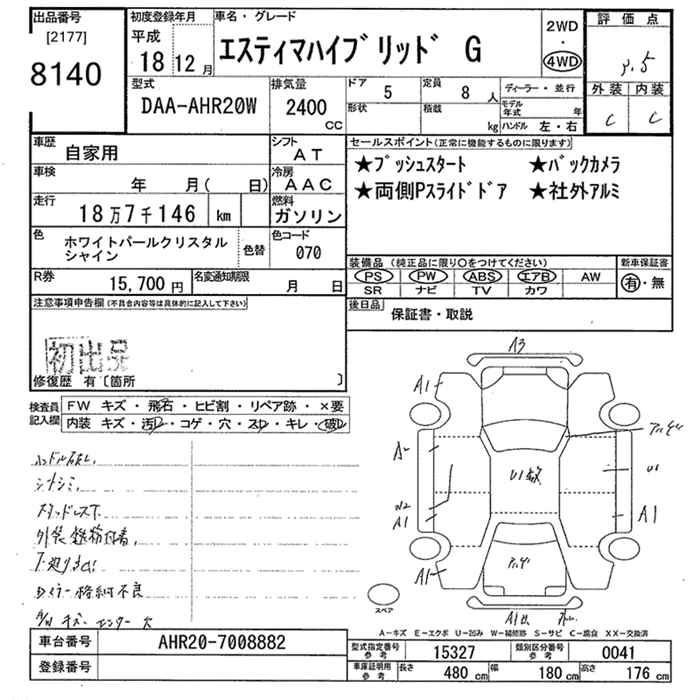 出品番号
[2177]
8140
初度登録年月
平成
18 12 月
車名・グレード
エスティマハイブリッド G
2WD
・
4WD
評価点
3.5
外装 内装
C C
型式
DAA-AHR20W
排気量
2400
CC
ドア 5
定員 8 人
形状
積載 kg
ディーラー・並行
モデル年式 年
ハンドル 左・右
車歴
自家用
シフト
AT
車検
年 月( 日)
冷房
AAC
走行
18万7千146 km
燃料
ガソリン
色
ホワイトパールクリスタル
シャイン
色替
色コード
070
R券
15,700 円
名変通知期限
月 日
セールスポイント(正常に機能するものに限ります)
★プッシュスタート ★バックカメラ
★両側Pスライドドア ★社外アルミ
装備品 (純正品に限り○をつけてください)
新車保証書
PS PW ABS エアB AW
有・無
SR ナビ TV カワ
後日品
保証書・取説
注意事項申告欄(不具合内容等は具体的に記入して下さい)
初出品
修復歴 有〔箇所 〕
検査員
記入欄
FW キズ・飛石・ヒビ割・リペア跡・×要
内装 キズ・汚レ・コゲ・穴・スレ・キレ・破レ
ハンドル
シートシミ
A3
A1
A1
A1
A1
U1
スペア
A-キズ E-エクボ U-凹み W-補修跡 S-サビ C-腐食 XX-交換済
車台番号
AHR20-7008882
登録番号
型式指定番号
参考
15327
類別区分番号
参考
0041
車庫証明用
参考
長さ 480 cm
幅 180 cm
高さ 176 cm